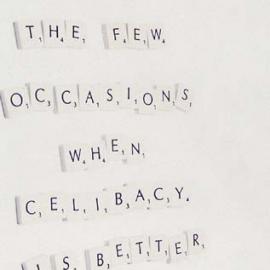 THE FEW
OCCASIONS
WHEN
CELIBACY
IS BETTER